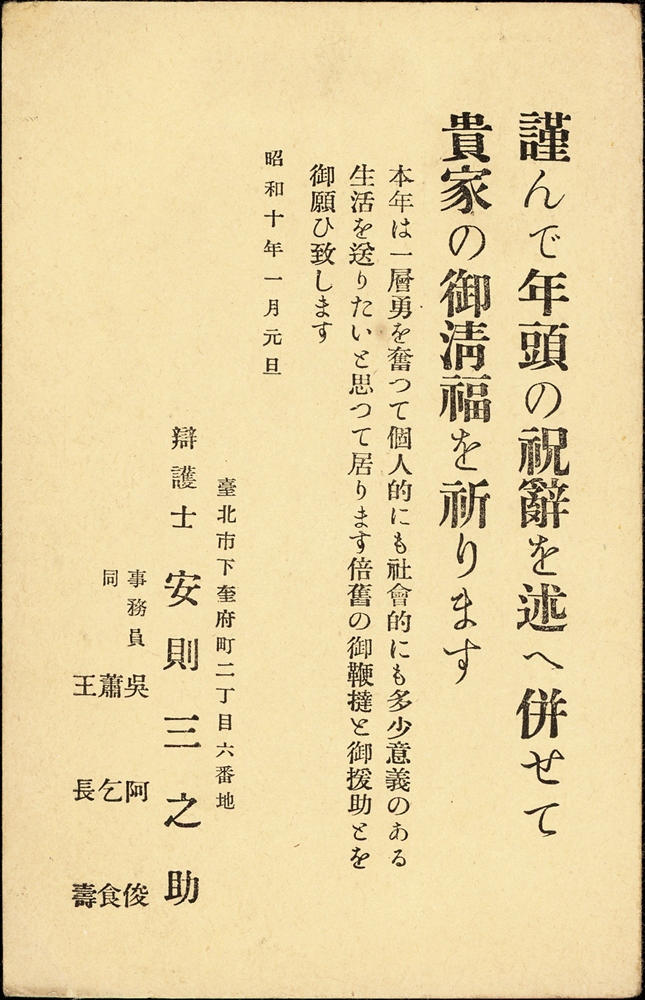 謹んで年頭の祝辭を述へ併せて
貴家の御淸福を祈ります
本年は一層勇を奮つて個人的にも社會的にも多少意義のある
生活を送りたいと思つて居ります倍舊の御鞭撻と御援助とを
御願ひ致します
昭和十年一月元旦
臺北市下奎府町二丁目六番地
辯護士 安則三之助
事務員 吳阿俊
同 蕭乞食
王長壽